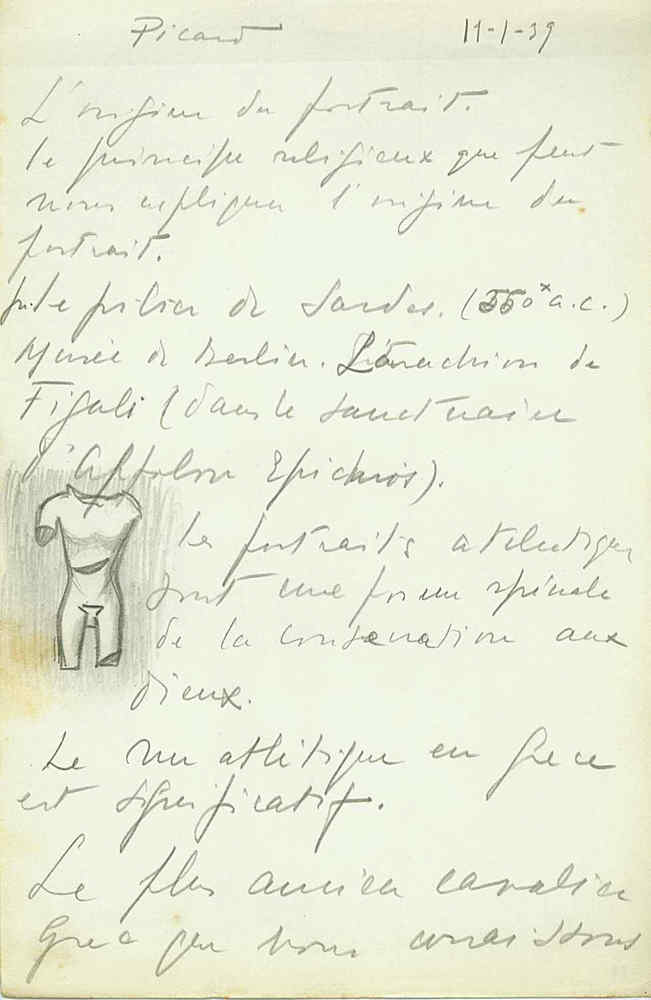 Picard 11-1-39
L'origine du portrait.
le principe religieux que peut
nous expliquer l'origine du
portrait.
le pilier de Sardes. (550 a.c.)
Musée de Berlin. de
Figali (dans le sanctuaire
d'Apollon
Les portraits
sont une forme spéciale
de la consecration aux
dieux.
Le nu athlétique en Grece
est significatif.
Le plus ancien cavalier
Grec que nous conaissons